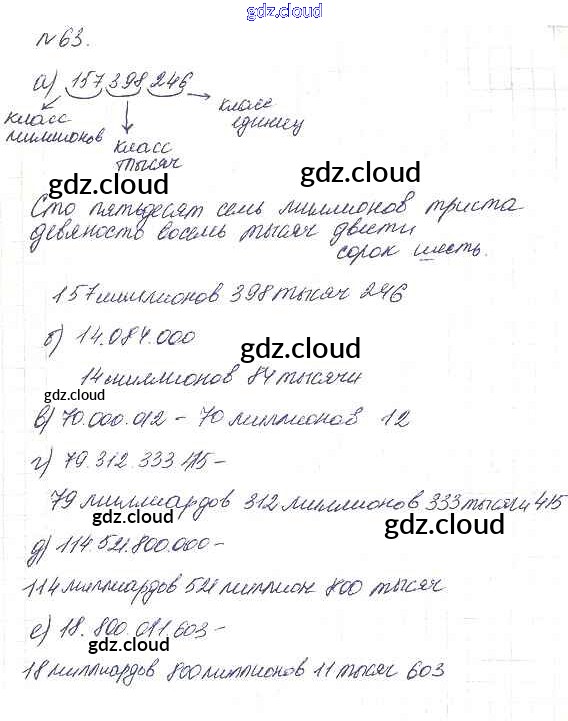 gdz.cloud
№63.
а) 157 398 246
класс миллионов
класс тысяч
класс единиц
gdz.cloud
gdz.cloud
Сто пятьдесят семь миллионов триста
девяносто восемь тысяч двести
сорок шесть.
157 миллионов 398 тысяч 246
б) 14.084.000
gdz.cloud
14 миллионов 84 тысячи
gdz.cloud
в) 70.000.012 – 70 миллионов 12
г) 79.312.333.415 –
79 миллиардов 312 миллионов 333 тысячи 415
gdz.cloud
gdz.cloud
д) 114.521.800.000 –
114 миллиардов 521 миллион 800 тысяч
е) 18.800.011.603 –
18 миллиардов 800 миллионов 11 тысяч 603